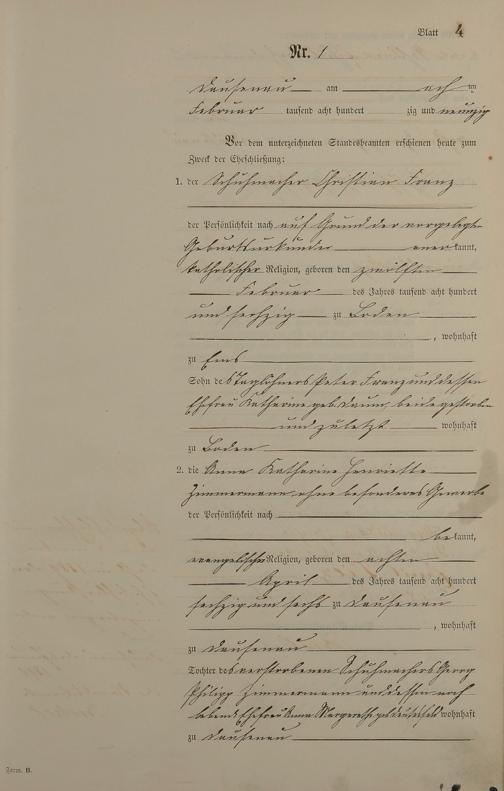 Blatt 4
Nr. 1
Dausenau am
Februar tausend acht hundert zig und neunzig
Vor dem unterzeichneten Standesbeamten erschienen heute zum
Zweck der Eheschließung:
1. der Schuhmacher Christian Franz
der Persönlichkeit nach auf Grund der vorgelegten
Geburtsurkunde anerkannt,
katholischer Religion, geboren den zwölften
Februar des Jahres tausend acht hundert
und sechzig zu Boden
, wohnhaft
zu Ems
Sohn des Taglöhners Peter Franz und dessen
Ehefrau Katharine geb. Daum, beide gestorben
und zuletzt wohnhaft
zu Boden
2. die Anna Katharine Henriette
Zimmermann, ohne besonderes Gewerbe
der Persönlichkeit nach
bekannt,
evangelischer Religion, geboren den achten
April des Jahres tausend acht hundert
sechzig und sechs zu Dausenau
, wohnhaft
zu Dausenau
Tochter des verstorbenen Schuhmachers Georg
Philipp Zimmermann und dessen noch
lebend Ehefrau Anna Margarethe geb. wohnhaft
zu Dausenau
Form. B.